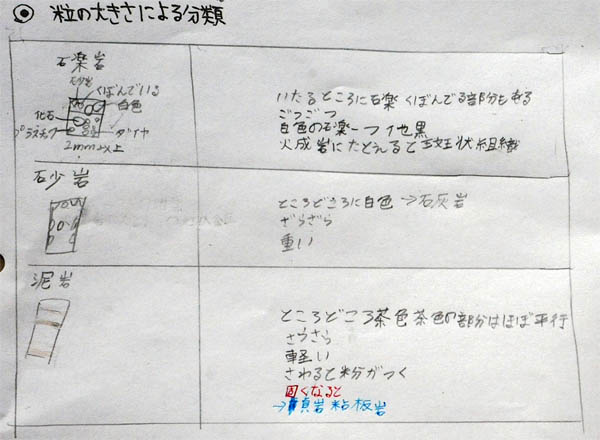 ◉ 粒の大きさによる分類
石楽岩
砂岩
くぼんでいる
白色
化石
プラスチック
ダイヤ
2mm以上
いたるところに石楽 くぼんでる部分もある
ごつごつ
白色の石楽一つ 他黒
火成岩にたとえると斑状組織
砂岩
ところどころに白色→石灰岩
ざらざら
重い
泥岩
ところどころ茶色 茶色の部分はほぼ平行
さらさら
軽い
さわると粉がつく
固くなると
→頁岩 粘板岩